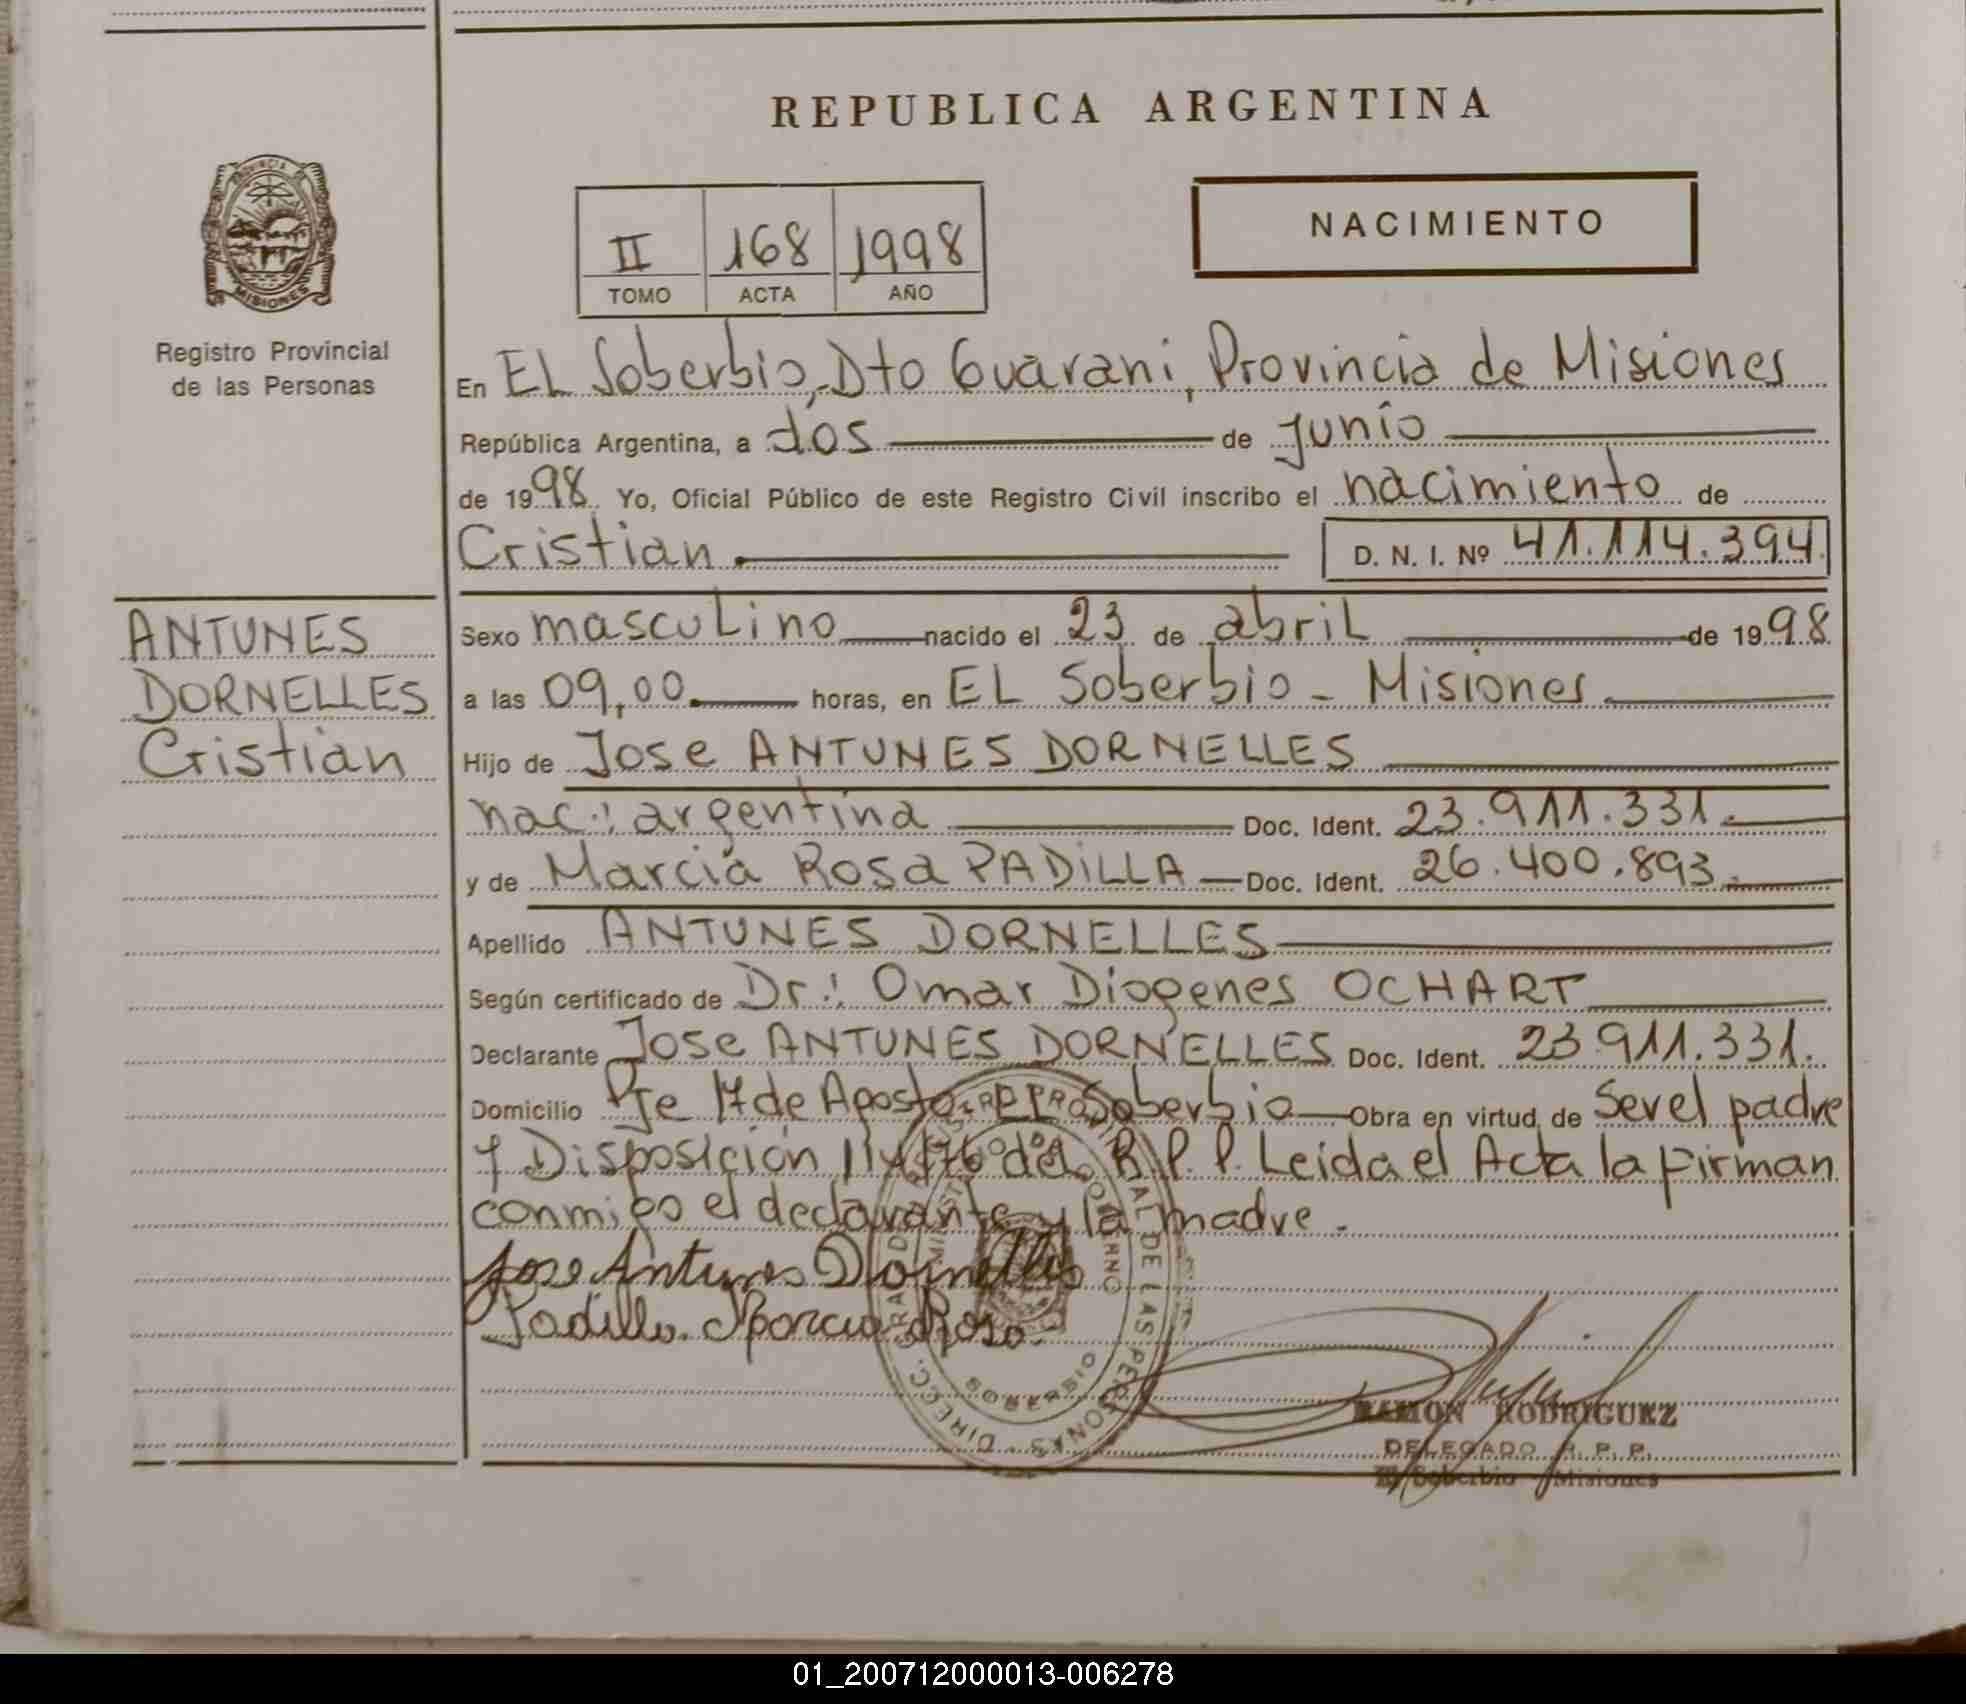 REPUBLICA ARGENTINA
PROVINCIA DE
MISIONES
Registro Provincial
de las Personas
II 168 1998
TOMO ACTA AÑO
NACIMIENTO
En EL Soberbio, Dto Guarani, Provincia de Misiones
República Argentina, a dos de Junio
de 1998. Yo, Oficial Público de este Registro Civil inscribo el nacimiento de
Cristian D. N. I. Nº 41.114.394.
ANTUNES
DORNELLES
Cristian
Sexo mascuLino nacido el 23 de abriL de 1998.
a las 09,00. horas, en EL Soberbio - Misiones
Hijo de Jose ANTUNES DORNELLES
nac.: argentina Doc. Ident. 23.911.331.
y de Marcia Rosa PADILLA Doc. Ident. 26.400.893.
Apellido ANTUNES DORNELLES
Según certificado de Dr.: Omar Diogenes OCHART
Declarante Jose ANTUNES DORNELLES Doc. Ident. 23.911.331.
Domicilio Pje 17 de Agosto Soberbio Obra en virtud de Ser el padre
y Disposición del R.P.P. Leida el Acta la firman
conmigo el declarante y la madre.
Jose Antunes Dornelles
Padilla Marcia Rosa
DIRECC. GRAL DE LAS PERSONAS
SOBERBIO
RAMON RODRIGUEZ
DELEGADO R. P. P.
El Soberbio Misiones
01_200712000013-006278